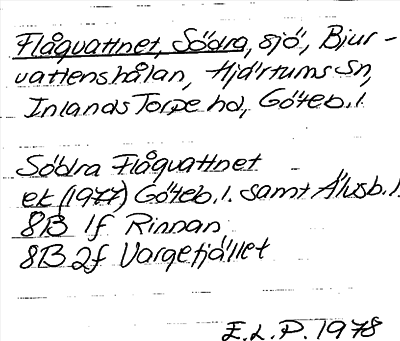 Flåvattnet, Södra, sjö, Bjur-
vattenshålan, Hjärtums Sn,
Inlands Torpe hd, Göteb.l.
Södra Flåvattnet
ek (1977) Göteb.l. samt Älvsb.l.
8B 1f Rinnan
8B 2f Vargefjället
E.L.P. 1978